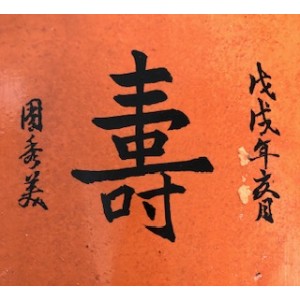 戊戌年亥月
壽
周秀美